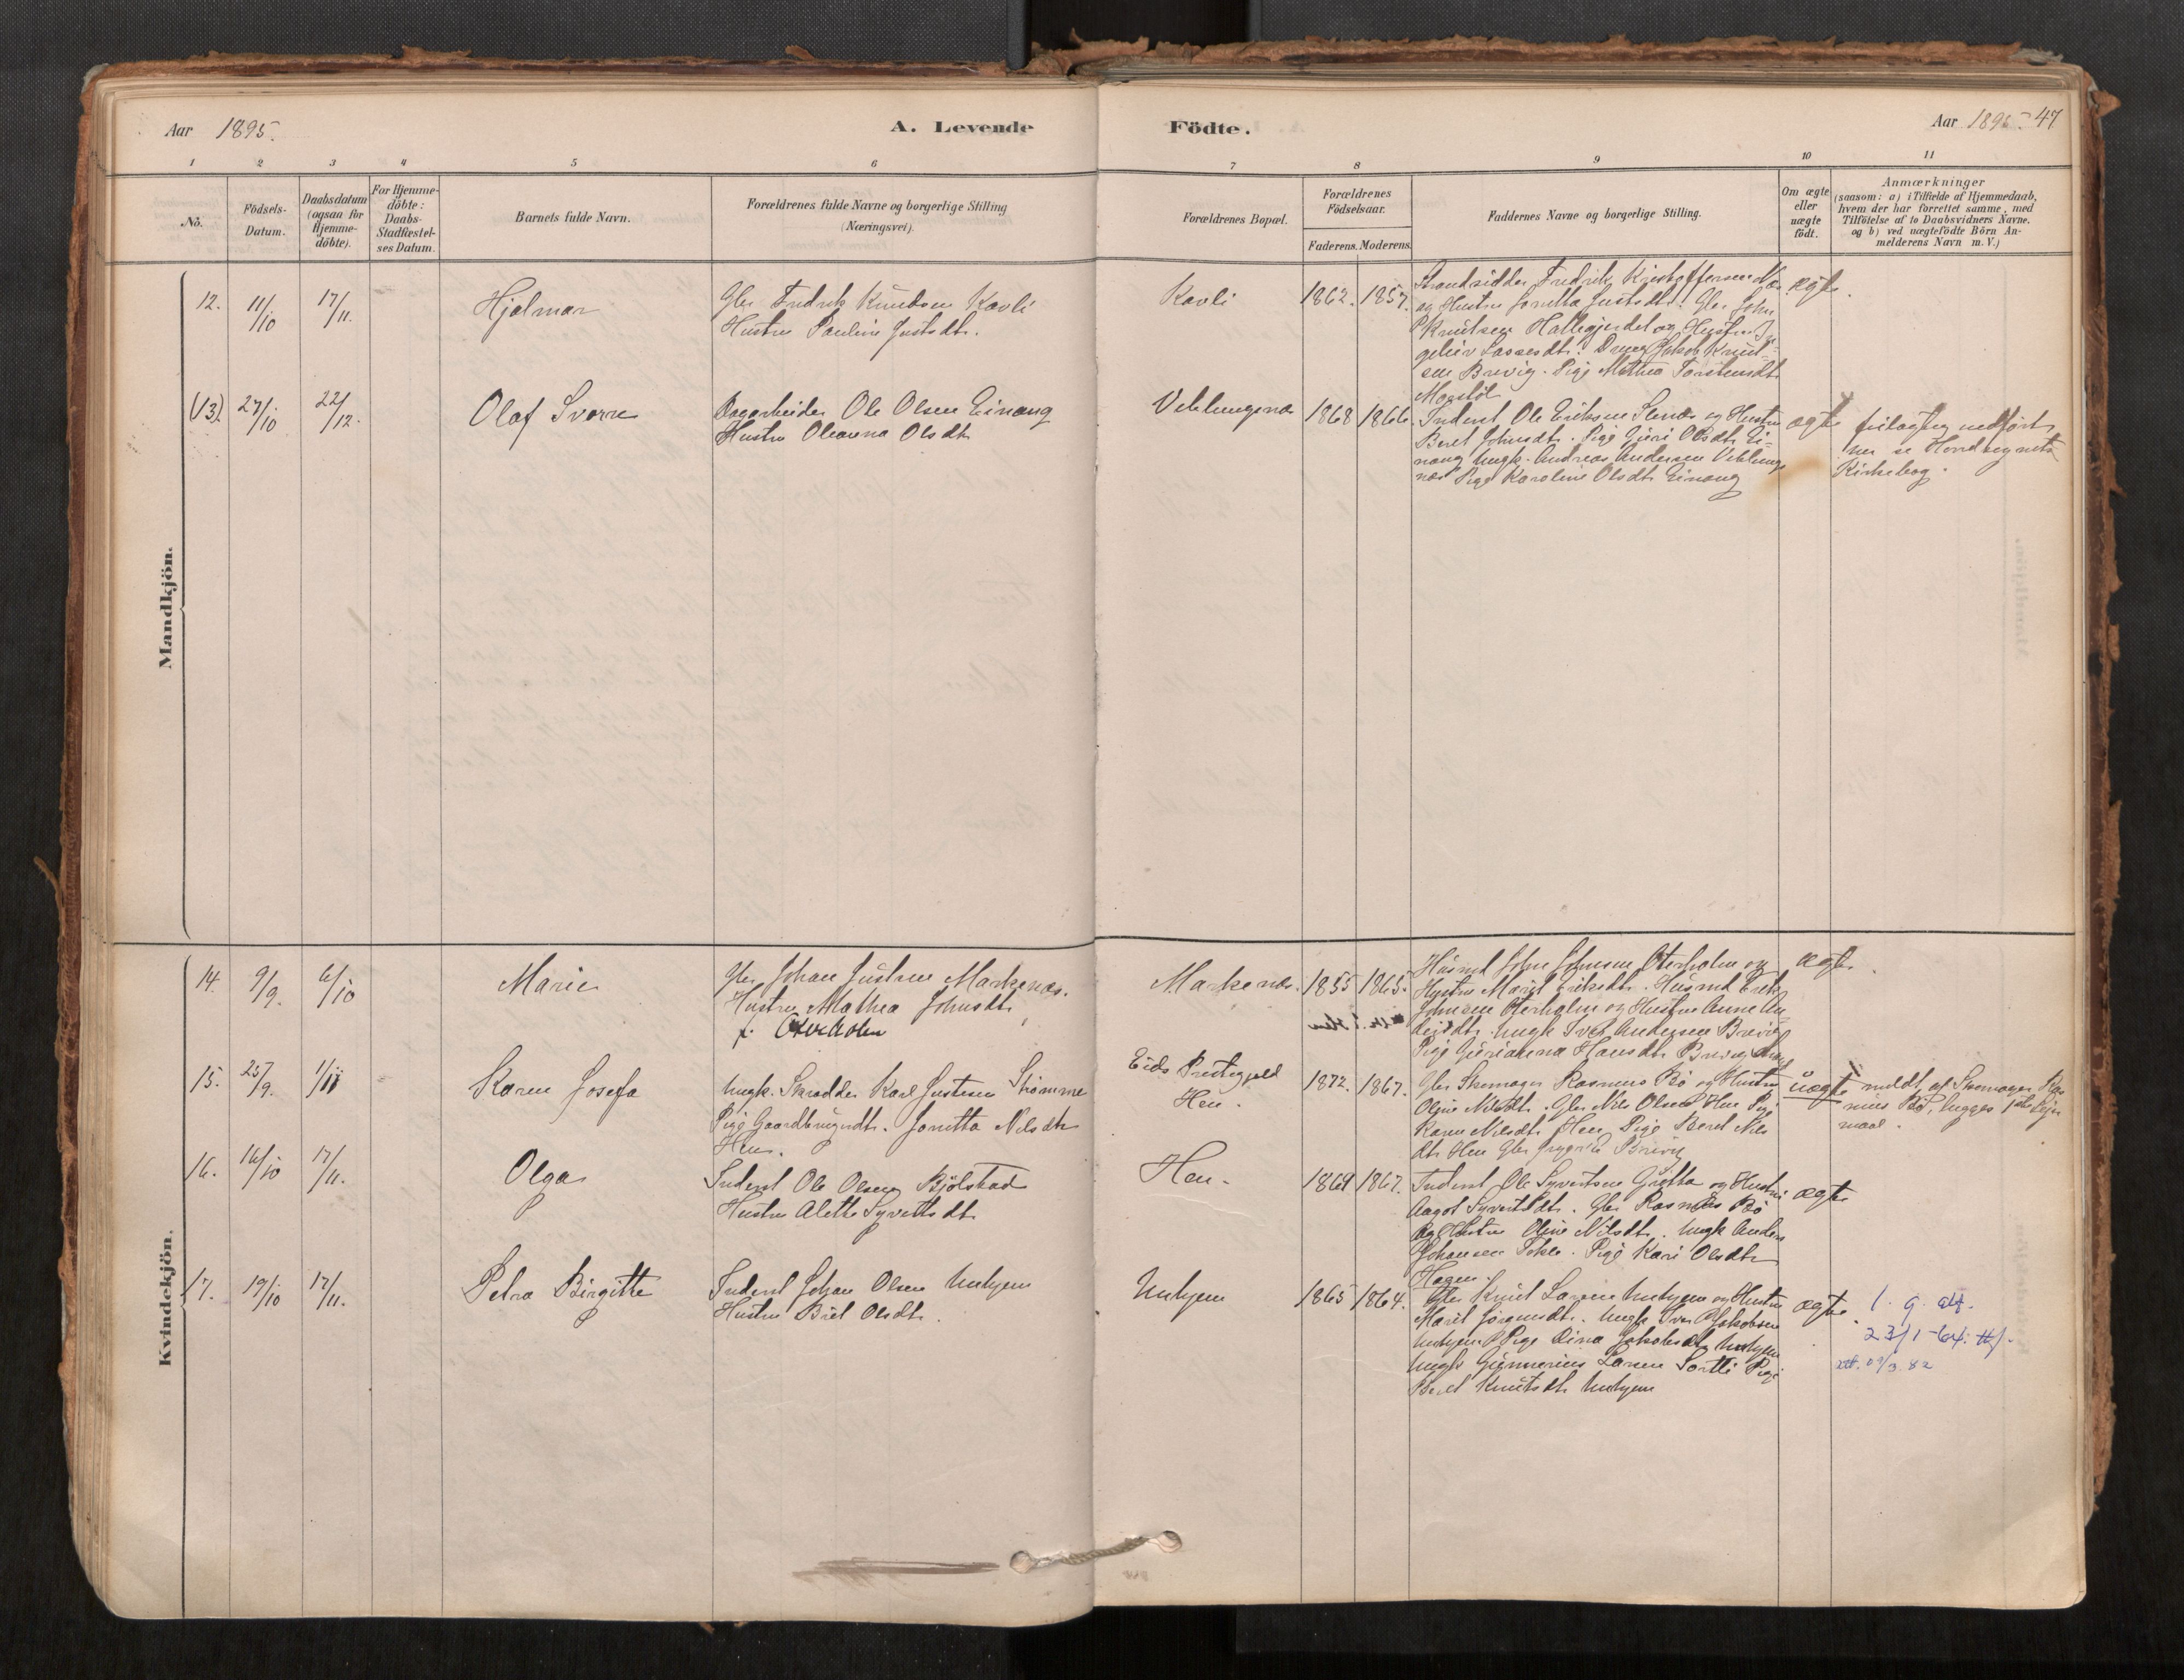 Aar 1895.
A. Levende
Födte.
Aar 1895. 47
1 2 3 4 5 6
7 8 9 10 11
No.
Födsels-Datum.
Daabsdatum (ogsaa for Hjemme-döbte).
For Hjemme-döbte: Daabs-Stadfæstel-ses Datum.
Barnets fulde Navn.
Forældrenes fulde Navne og borgerlige Stilling
(Næringsvei).
Forældrenes Bopæl.
Forældrenes Födselsaar.
Faderens. Moderens.
Faddernes Navne og borgerlige Stilling.
Om ægte eller uægte födt.
Anmærkninger
(saasom: a) i Tilfælde af Hjemmedaab,
hvem der har forrettet samme, med
Tilföielse af to Daabsvidners Navne.
og b) ved uægtefödte Börn An-
melderens Navn m. V.)
Mandkjön.
12. 11/10 17/11. Hjalmar
Gbr Fredrik Knudsen Kavli
Hustru Pauline Justsdt.
Kavli 1862. 1857.
Strandsidder Fredrik Kristoffersen Næs
og Hustru Jonetta Justsdt. Gbr John
Knutsen Hallegjerdet og Hustru In-
gebør Lassesdt. Dreng Jakob Knut-
sen Brevig. Pige Mathea Torstensdt
Morstøl
ægte.
(13) 27/10 22/12. Olaf Sverre
Dagarbeider Ole Olsen Einang
Hustru Oleanna Olsdt
Veblungsnæs 1868 1866.
Inderst Ole Eriksen Sletnæs og Hustru
Beret Johnsdt. Pige Guri Olsdt Ei-
nang Ungk. Andreas Andersen Veblungs
næs Pige Karoline Olsdt Einang
ægte
feilagtig indført
her se Hovedsognets
Kirkebog.
Kvindekjön.
14. 9/9. 6/10 Marie
Gbr Johan Justsen Markenæs.
Hustru Mathea Johnsdt
f. Oterholm
Markenæs. 1855 1865.
Husmd John Johnsen Oterholm og
Hustru Marit Eriksdt. Husmd Erik
Johnsen Oterholm og Hustru Anne An
dersdt. Ungk Iver Andersen Brevig
Pige Gurianna Hansdt Brevig
ægte
15. 25/9. 1/11 Karen Josefa
Ungk. Skrædder Karl Justesen Strømme
Pige Gaardbrugerdt. Jonetta Nilsdt
Hen.
Eids Prestegjeld
Hen.
1872. 1867.
Gbr Skomager Rasmus Bö og Hustru
Oline Nilsdt. Gbr Nils Olsen Hen Pige
Karen Nilsdt Hen, Pige Beret Nils
dt Hen Gbr Brevig
uægte
meldt af Skomager Ras
mus Bö, begges 1ste Leier
maal.
16. 16/10 17/11. Olga
Inderst Ole Olsen Bjölstad
Hustru Alette Syvertsdt
Hen. 1869 1867.
Inderst Ole Syvertsen Gjetta og Hustru
Aagot Syvertsdt. Gbr Rasmus Bö
og Hustru Oline Nilsdt. Ungk Anders
Johansen Tokle. Pige Kari Olsdt
Hagen.
ægte
17. 19/10 17/11. Petra Birgitte
Inderst Johan Olsen Unhjem
Hustru Brit Olsdt.
Unhjem 1865 1864.
Gbr Knut Larsen Unhjem og Hustru
Marit Jørgensdt. Ungk Iver Jakobsen
Unhjem Pige Dina Jakobsdt Unhjem
Ungk Gunnerius Larsen Sortli Pige
Beret Knutsdt Unhjem
ægte.
1. g. att.
23/1-64.
att. 09/3.82